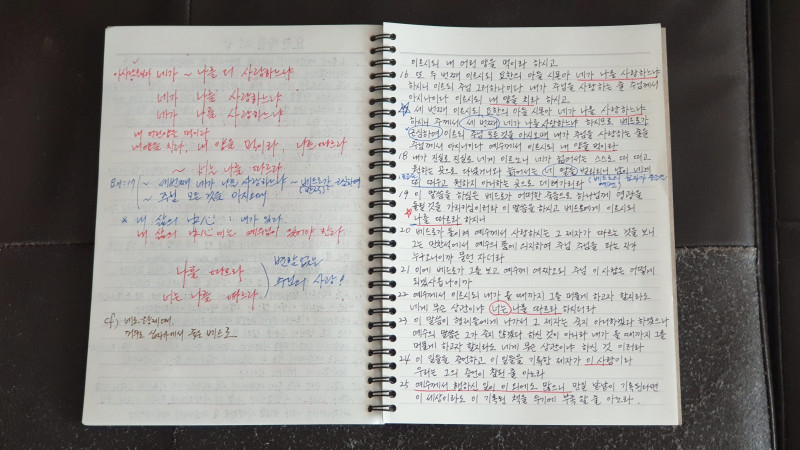 이 사람들보다 네가 ~ 나를 더 사랑하느냐
네가 나를 사랑하느냐
네가 나를 사랑하느냐
내 어린양을 먹이라
내 양을 치라, 내 양을 먹이라, 나를 따르라
~ 너는 나를 따르라
~ 세번째 네가 나를 사랑하느냐 ~ 베드로가 근심하여
~ 주님 모든 것을 아시오매
* 내 삶의 中心 : 내가 있다
내 삶의 中心에는 예수님이 있어야 한다
나를 따르라
너는 나를 따르라
변함없는
주님의 사랑!
cf)
거꾸로 십자가에서 죽은 베드로
이르시되 내 어린 양을 먹이라 하시고
16 또 두 번째 이르시되 요한의 아들 시몬아 네가 나를 사랑하느냐
하시니 이르되 주님 그러하나이다 내가 주님을 사랑하는 줄 주께서
아시나이다 이르시되 내 양을 치라 하시고
세 번째 이르시되 요한의 아들 시몬아 네가 나를 사랑하느냐
하시니 주께서 세 번째 네가 나를 사랑하느냐 하시므로 베드로가
근심하여 이르되 주님 모든 것을 아시오매 내가 주님을 사랑하는 줄을
주님께서 아시나이다 예수께서 이르시되 내 양을 먹이라
18 내가 진실로 진실로 네게 이르노니 네가 젊어서는 스스로 띠 띠고
원하는 곳으로 다녔거니와 늙어서는 네 팔을 벌리리니 남이 네게
띠 띠우고 원하지 아니하는 곳으로 데려가리라
19 이 말씀을 하심은 베드로가 어떠한 죽음으로 하나님께 영광을
돌릴 것을 가리키심이러라 이 말씀을 하시고 베드로에게 이르시되
나를 따르라 하시니
20 베드로가 돌이켜 예수께서 사랑하시는 그 제자가 따르는 것을 보니
그는 만찬석에서 예수의 품에 의지하여 주님 주님을 파는 자가
누구오니이까 묻던 자더라
21 이에 베드로가 그를 보고 예수께 여짜오되 주님 이 사람은 어떻게
되겠사옵나이까
22 예수께서 이르시되 내가 올 때까지 그를 머물게 하고자 할지라도
네게 무슨 상관이냐 너는 나를 따르라 하시더라
23 이 말씀이 형제들에게 나가서 그 제자는 죽지 아니하겠다 하였으나
예수의 말씀은 그가 죽지 않겠다 하신 것이 아니라 내가 올 때까지 그를
머물게 하고자 할지라도 네게 무슨 상관이냐 하신 것 이러라
24 이 일들을 증언하고 이 일들을 기록한 제자가 이 사람이라
우리는 그의 증언이 참된 줄 아노라
25 예수께서 행하신 일이 이 외에도 많으니 만일 낱낱이 기록된다면
이 세상이라도 이 기록된 책을 두기에 부족할 줄 아노라.